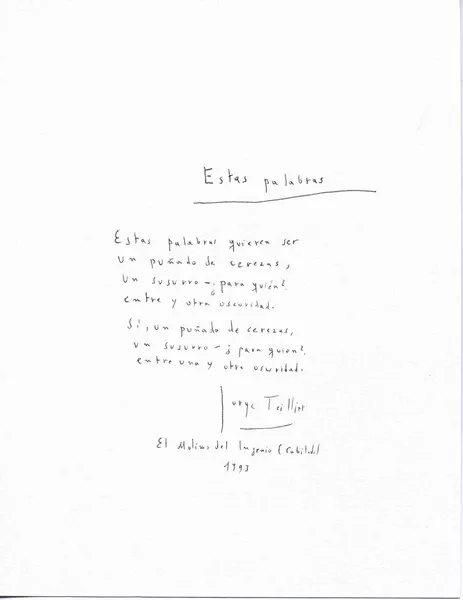 Estas palabras
Estas palabras quieren ser
un puñado de cerezas,
un susurro -¿para quién?
entre y otra oscuridad.
Sí, un puñado de cerezas,
un susurro -¿para quién?
entre una y otra oscuridad.
Jorge Teillier
El Molino del Ingenio (Cabildo)
1993